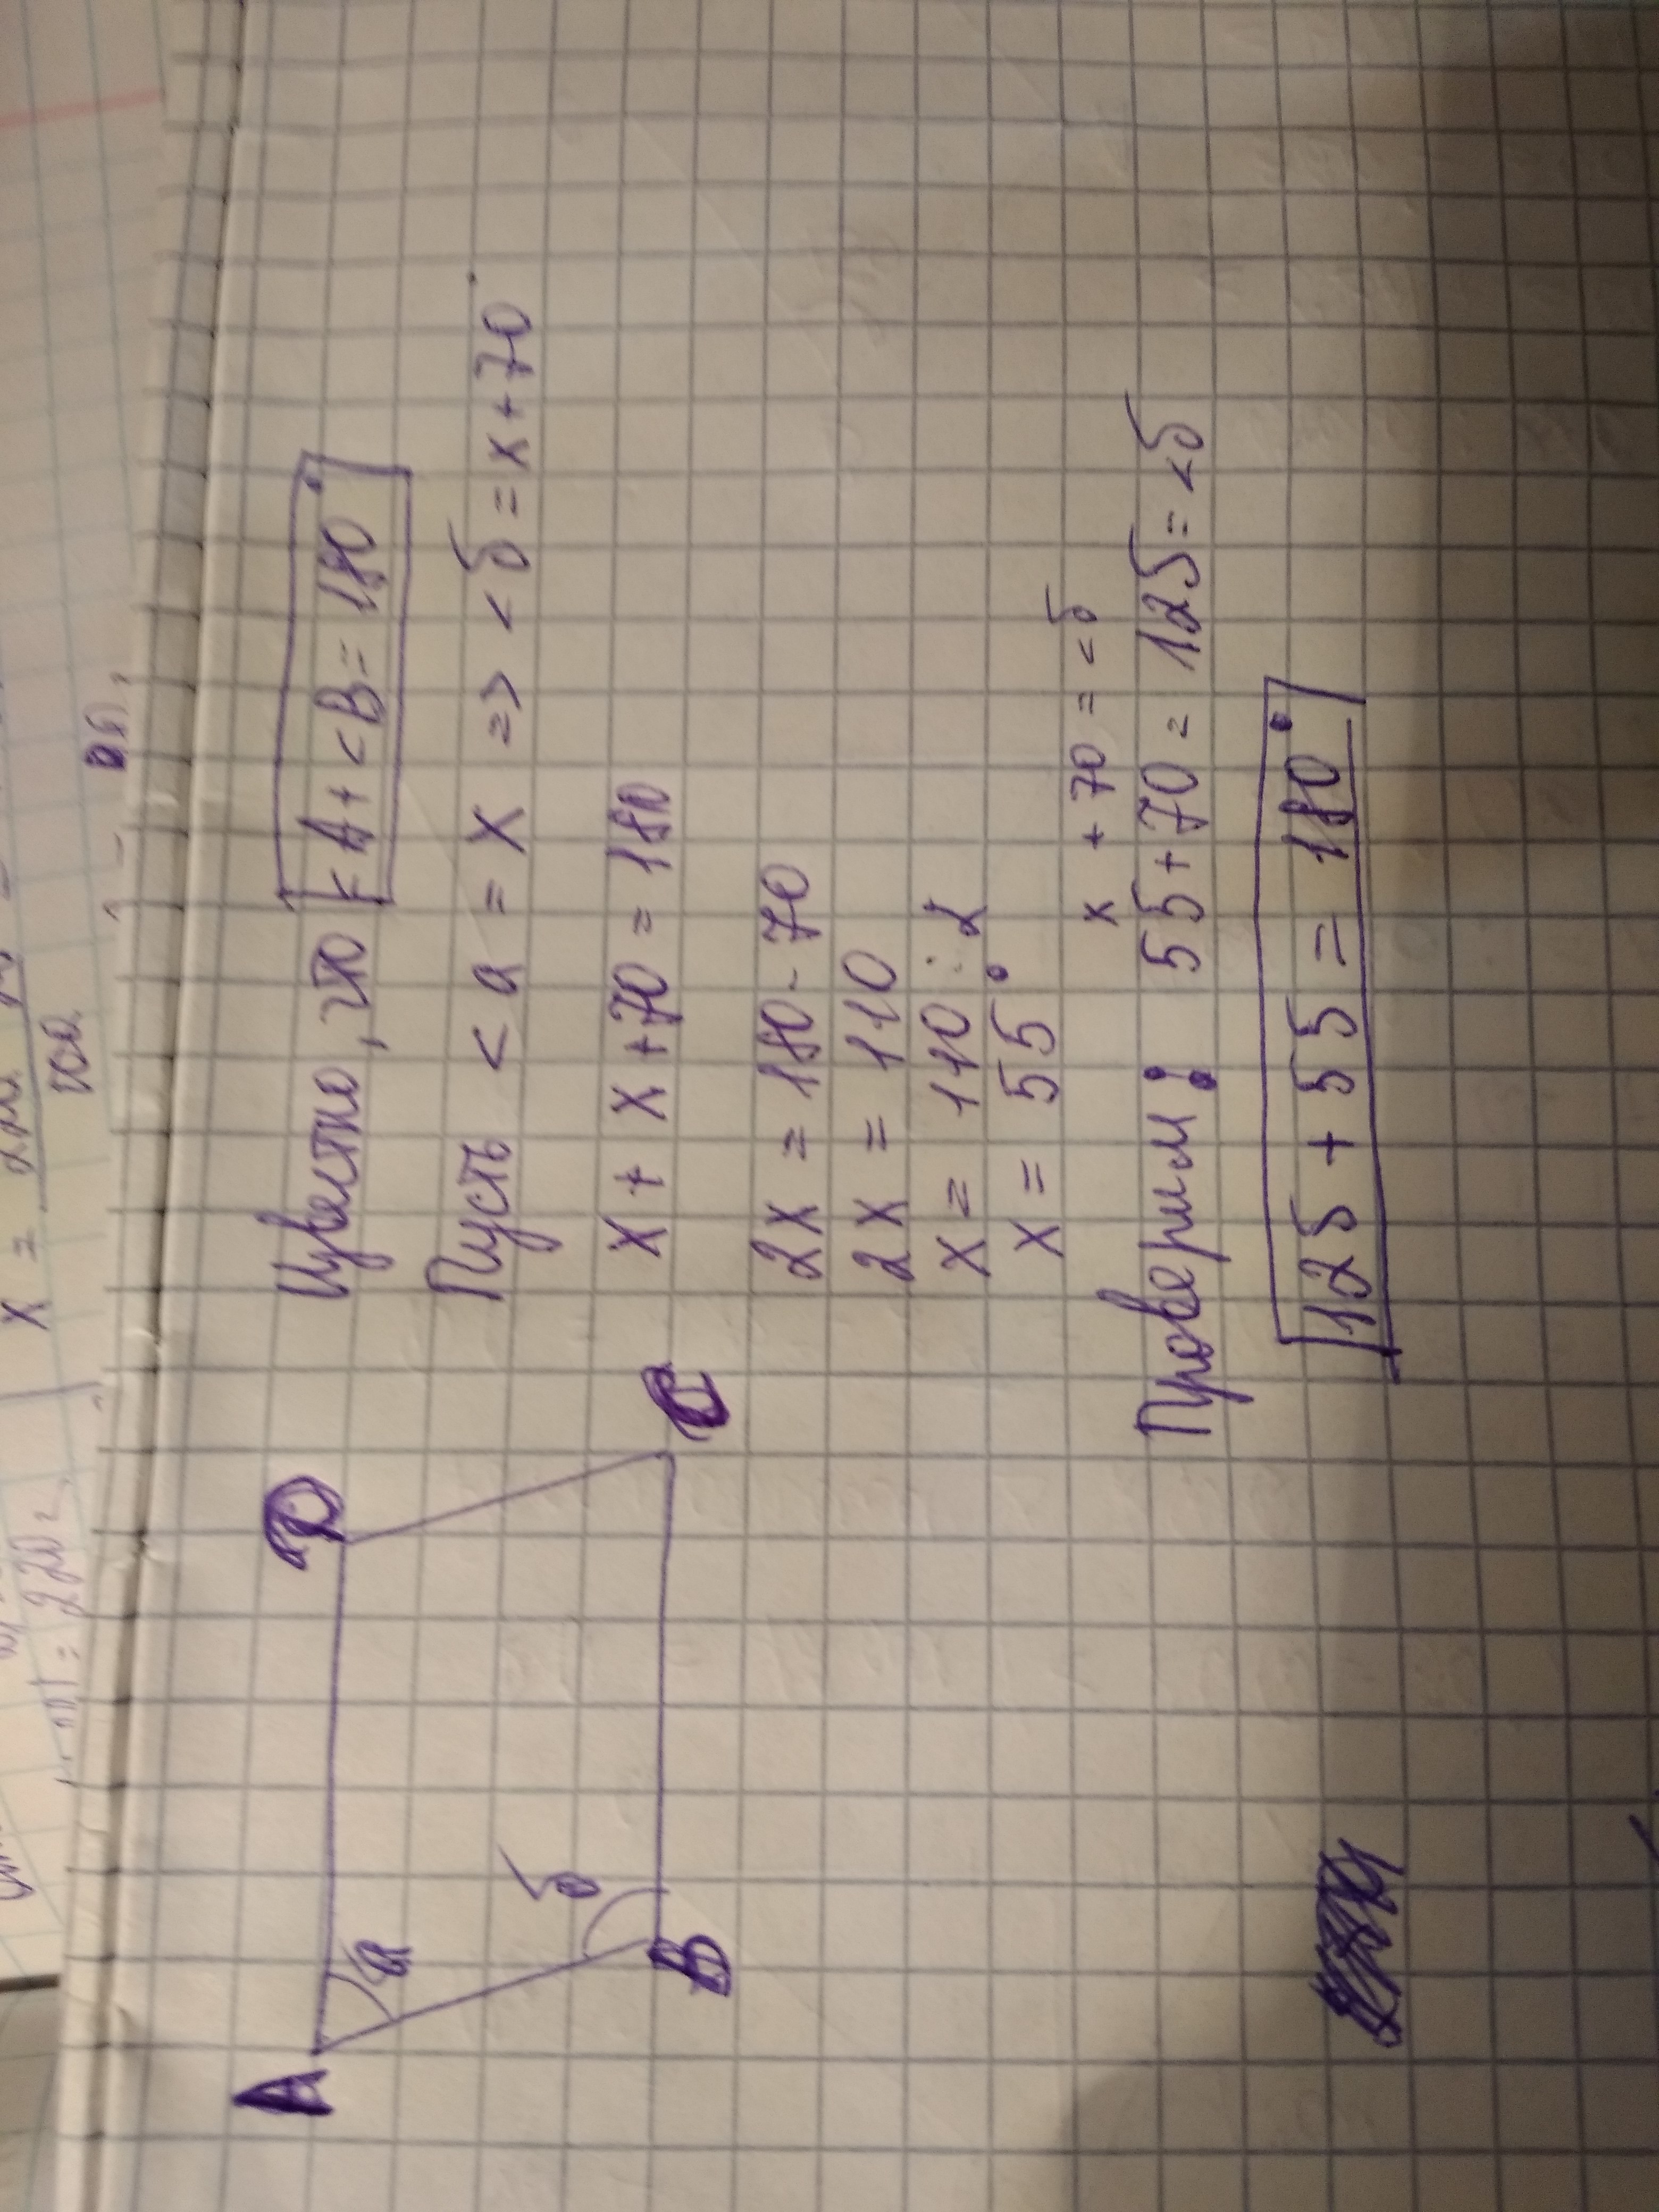 x =
юа
= 220
A
D
a
б
B
C
Известно, что < A + < B = 180°
Пусть < a = x => < б = x + 70°
x + x + 70 = 180
2x = 180 - 70
2x = 110
x = 110 : 2
x = 55°
x + 70 = < б
Проверим: 55 + 70 = 125 = < б
125 + 55 = 180°